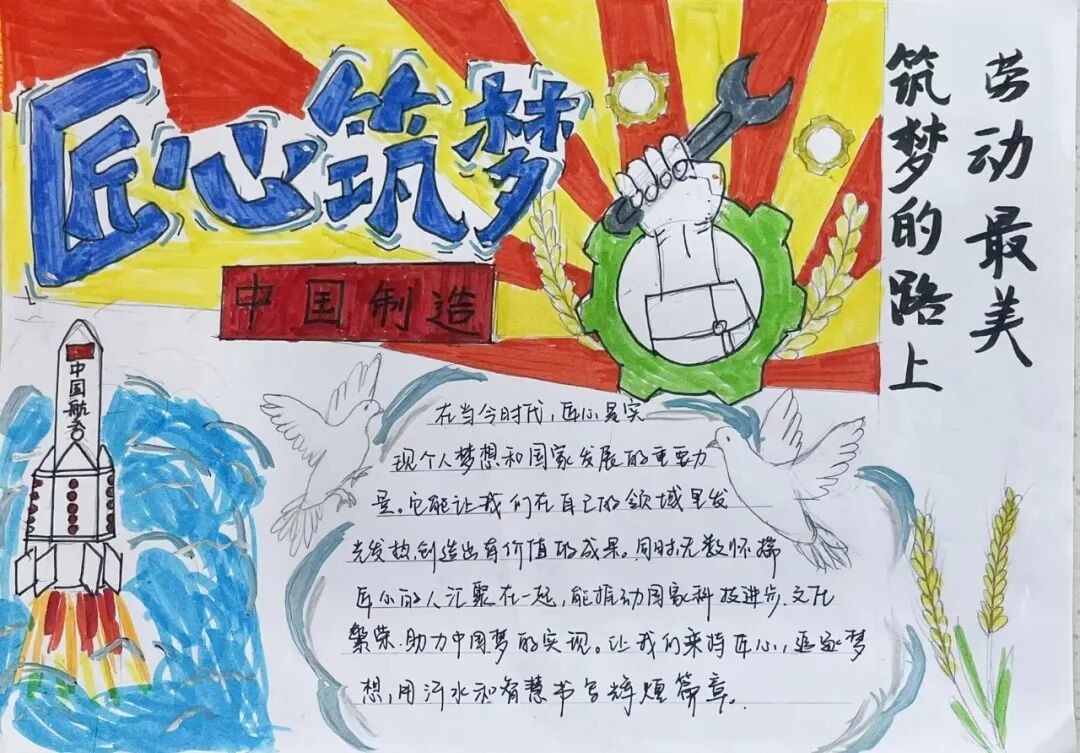 匠心筑梦
中国制造
劳动最美
筑梦的路上
中国航天
在当今时代，匠心是实
现个人梦想和国家发展的重要力
量。它能让我们在自己的领域里发
光发热，创造出有价值的成果。同时，无数怀揣
匠心的人汇聚在一起，能推动国家科技进步、文化
繁荣，助力中国梦的实现。让我们秉持匠心，追逐梦
想，用汗水和智慧书写辉煌篇章。